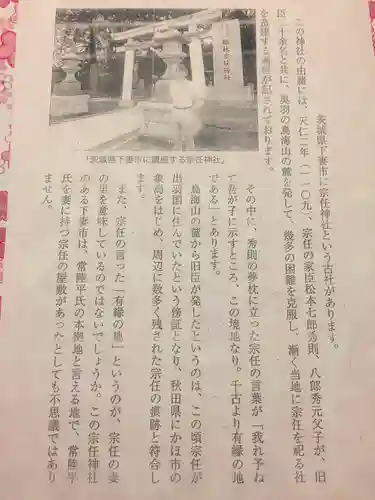 茨城県下妻市に宗任神社という古社があります。
この神社の由縁には、天仁二年(一一〇九)、宗任の家臣松本七郎秀則、八郎秀元父子が、旧
臣二十余名と共に、奥羽の鳥海山の麓を発して、幾多の困難を克服し、漸く当地に宗任を祀る社
を造建する
が記されております。
「茨城県下妻市に鎮座する宗任神社」
その中に、秀則の夢枕に立った宗任の言葉が「我れ予ね
て吾が子に示すところ、この境地なり。千古より有縁の地
である」とあります。
鳥海山の麓から旧臣が発したというのは、この頃宗任が
出羽国に住んでいたという傍証となり、秋田県にかほ市の
象潟をはじめ、周辺に数多く残された宗任の痕跡と符合し
ます。
また、宗任の言った「有縁の地」というのが、宗任の妻
の里を意味しているのではないでしょうか。この宗任神社
のある下妻市は、常陸平氏の本拠地と言える地で、常陸平
氏を妻に持つ宗任の屋敷があったとしても不思議ではあり
ません。